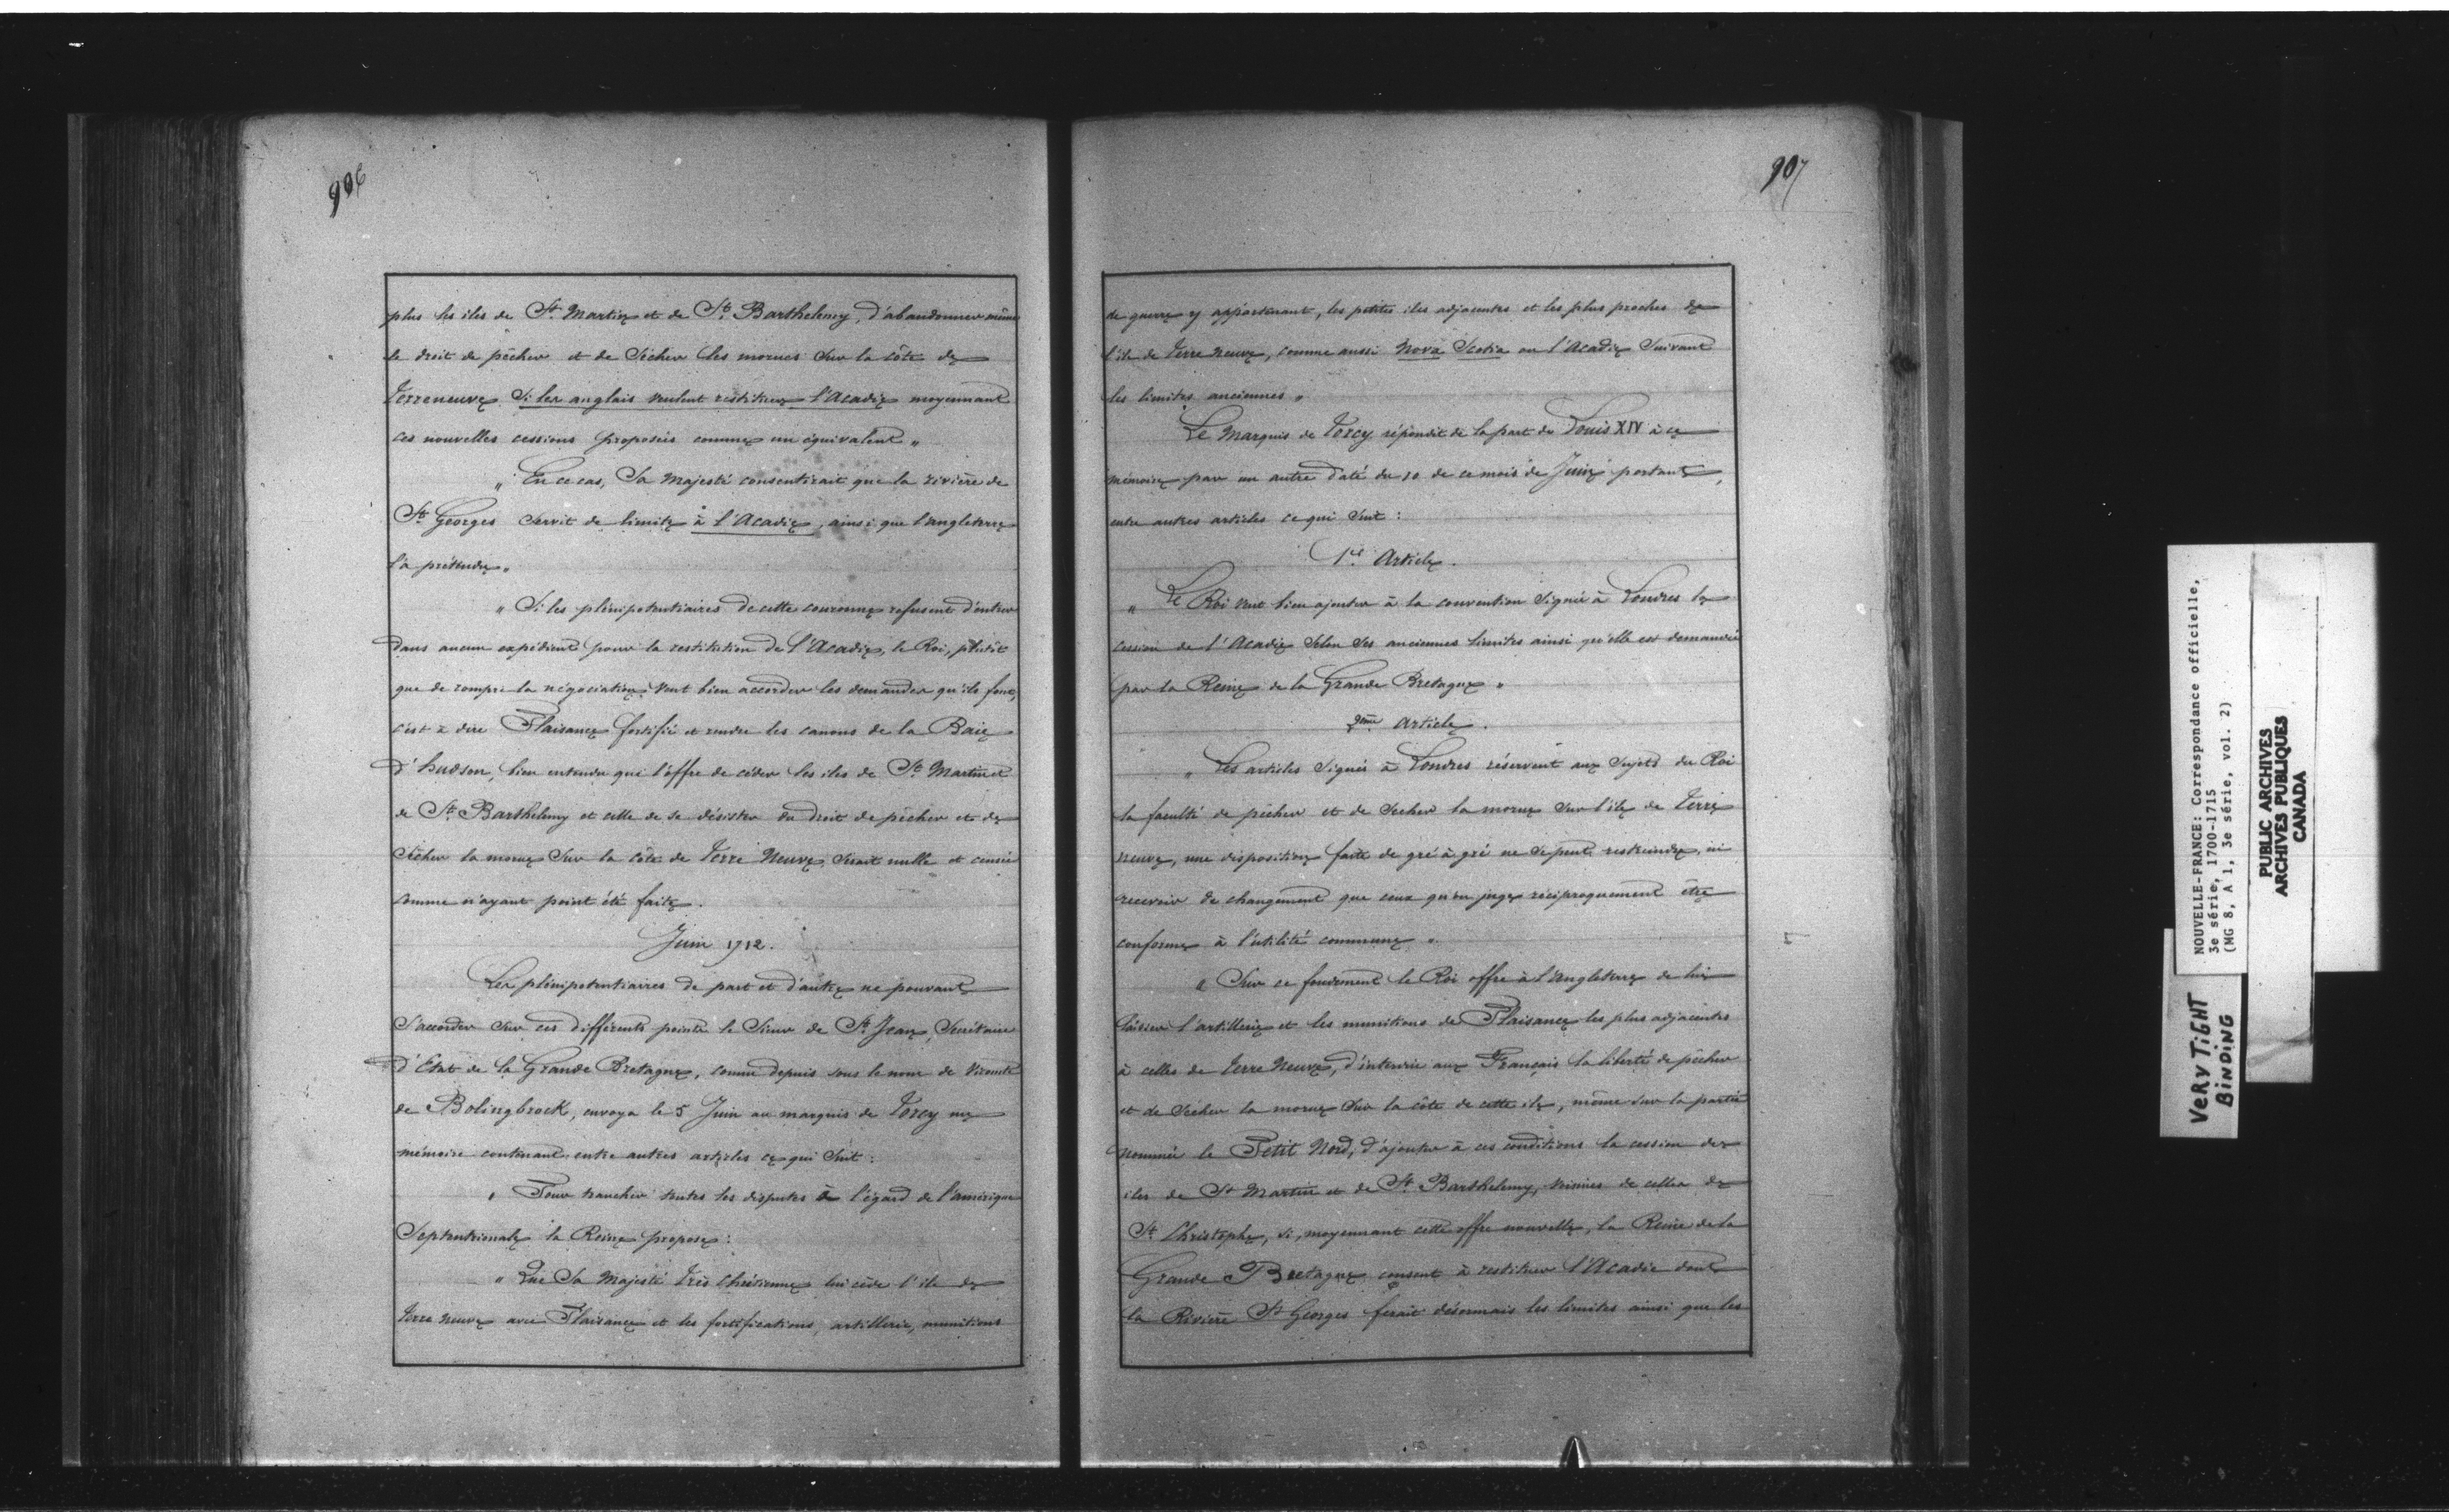 906
plus les iles de St Martin et de St Barthelemy, d'abandonner même
le droit de pêcher et de Sécher les morues Sur la côte de
Terreneuve Si les anglais veulent restituer l'Acadie moyennant
ces nouvelles cessions proposées comme un équivalent "
" En ce cas, Sa Majesté consentirait que la rivière de
St Georges Servit de limite à l'Acadie, ainsi que l'angleterre
l'a prétendu "
" Si les plénipotentiaires de cette couronne refusent d'entrer
dans aucun expédient pour la restitution de l'Acadie, le Roi, plutôt
que de rompre la négociation veut bien accorder les demandes qu'ils font,
c'est à dire Plaisance fortifié et rendre les canons de la Baie
d'hudson, bien entendu que l'offre de céder les iles de St Martin et
de St Barthelemy et celle de se désister du droit de pêcher et de
Sécher la morue Sur la côte de Terre Neuve, Serait nulle et censée
comme n'ayant point été faite.
Juin 1712.
Les plénipotentiaires de part et d'autre ne pouvant
S'accorder Sur ces différents points le Sieur de St Jean, Secrétaire
d'Etat de la Grande Bretagne, connu depuis sous le nom de Vicomte
de Bolingbrock, envoya le 5 Juin au marquis de Torcy un
mémoire contenant entre autres articles ce qui Suit :
" Pour trancher toutes les disputes à l'égard de l'amérique
Septentrionale la Reine propose :
" Que Sa Majesté très Chrétienne lui cède l'ile de
terre neuve avec Plaisance et les fortifications, artillerie, munitions
907
de guerre y appartenant, les petites iles adjacentes et les plus proches de
l'ile de terre neuve, comme aussi Nova Scotia ou l'Acadie Suivant
les limites anciennes "
Le Marquis de Torcy répondit de la part de Louis XIV à ce
mémoire par un autre daté du 10 de ce mois de Juin portant,
entre autres articles ce qui Suit :
1er Article.
" Le Roi veut bien ajouter à la convention Signée à Londres la
cession de l'Acadie Selon Ses anciennes limites ainsi qu'elle est demandée
par la Reine de la Grande Bretagne "
2ème Article.
" Les articles Signés à Londres réservent aux Sujets du Roi
la faculté de pêcher et de Secher la morue Sur l'ile de terre
neuve, une disposition faite de gré à gré ne Se peut restreindre, ni
recevoir de changement que ceux qu'on juge réciproquement être
conforme à l'utilité commune "
" Sur ce fondement le Roi offre à l'Angleterre de lui
laisser l'artillerie et les munitions de Plaisance les plus adjacentes
à celles de terre Neuve, d'interdire aux Français la liberté de pêcher
et de Sécher la morue Sur la côte de cette ile, même Sur la partie
nommée le Petit Nord, d'ajouter à ces conditions la cession des
iles de St Martin et de St Barthelemy, voisines de celles de
St Christophe, Si, moyennant cette offre nouvelle, la Reine de la
Grande Bretagne consent à restituer l'Acadie dont
la Rivière St Georges ferait désormais les limites ainsi que les
NOUVELLE-FRANCE: Correspondance officielle,
3e série, 1700-1715
(MG 8, A 1, 3e série, vol. 2)
PUBLIC ARCHIVES
ARCHIVES PUBLIQUES
CANADA
VERY TIGHT
BINDING